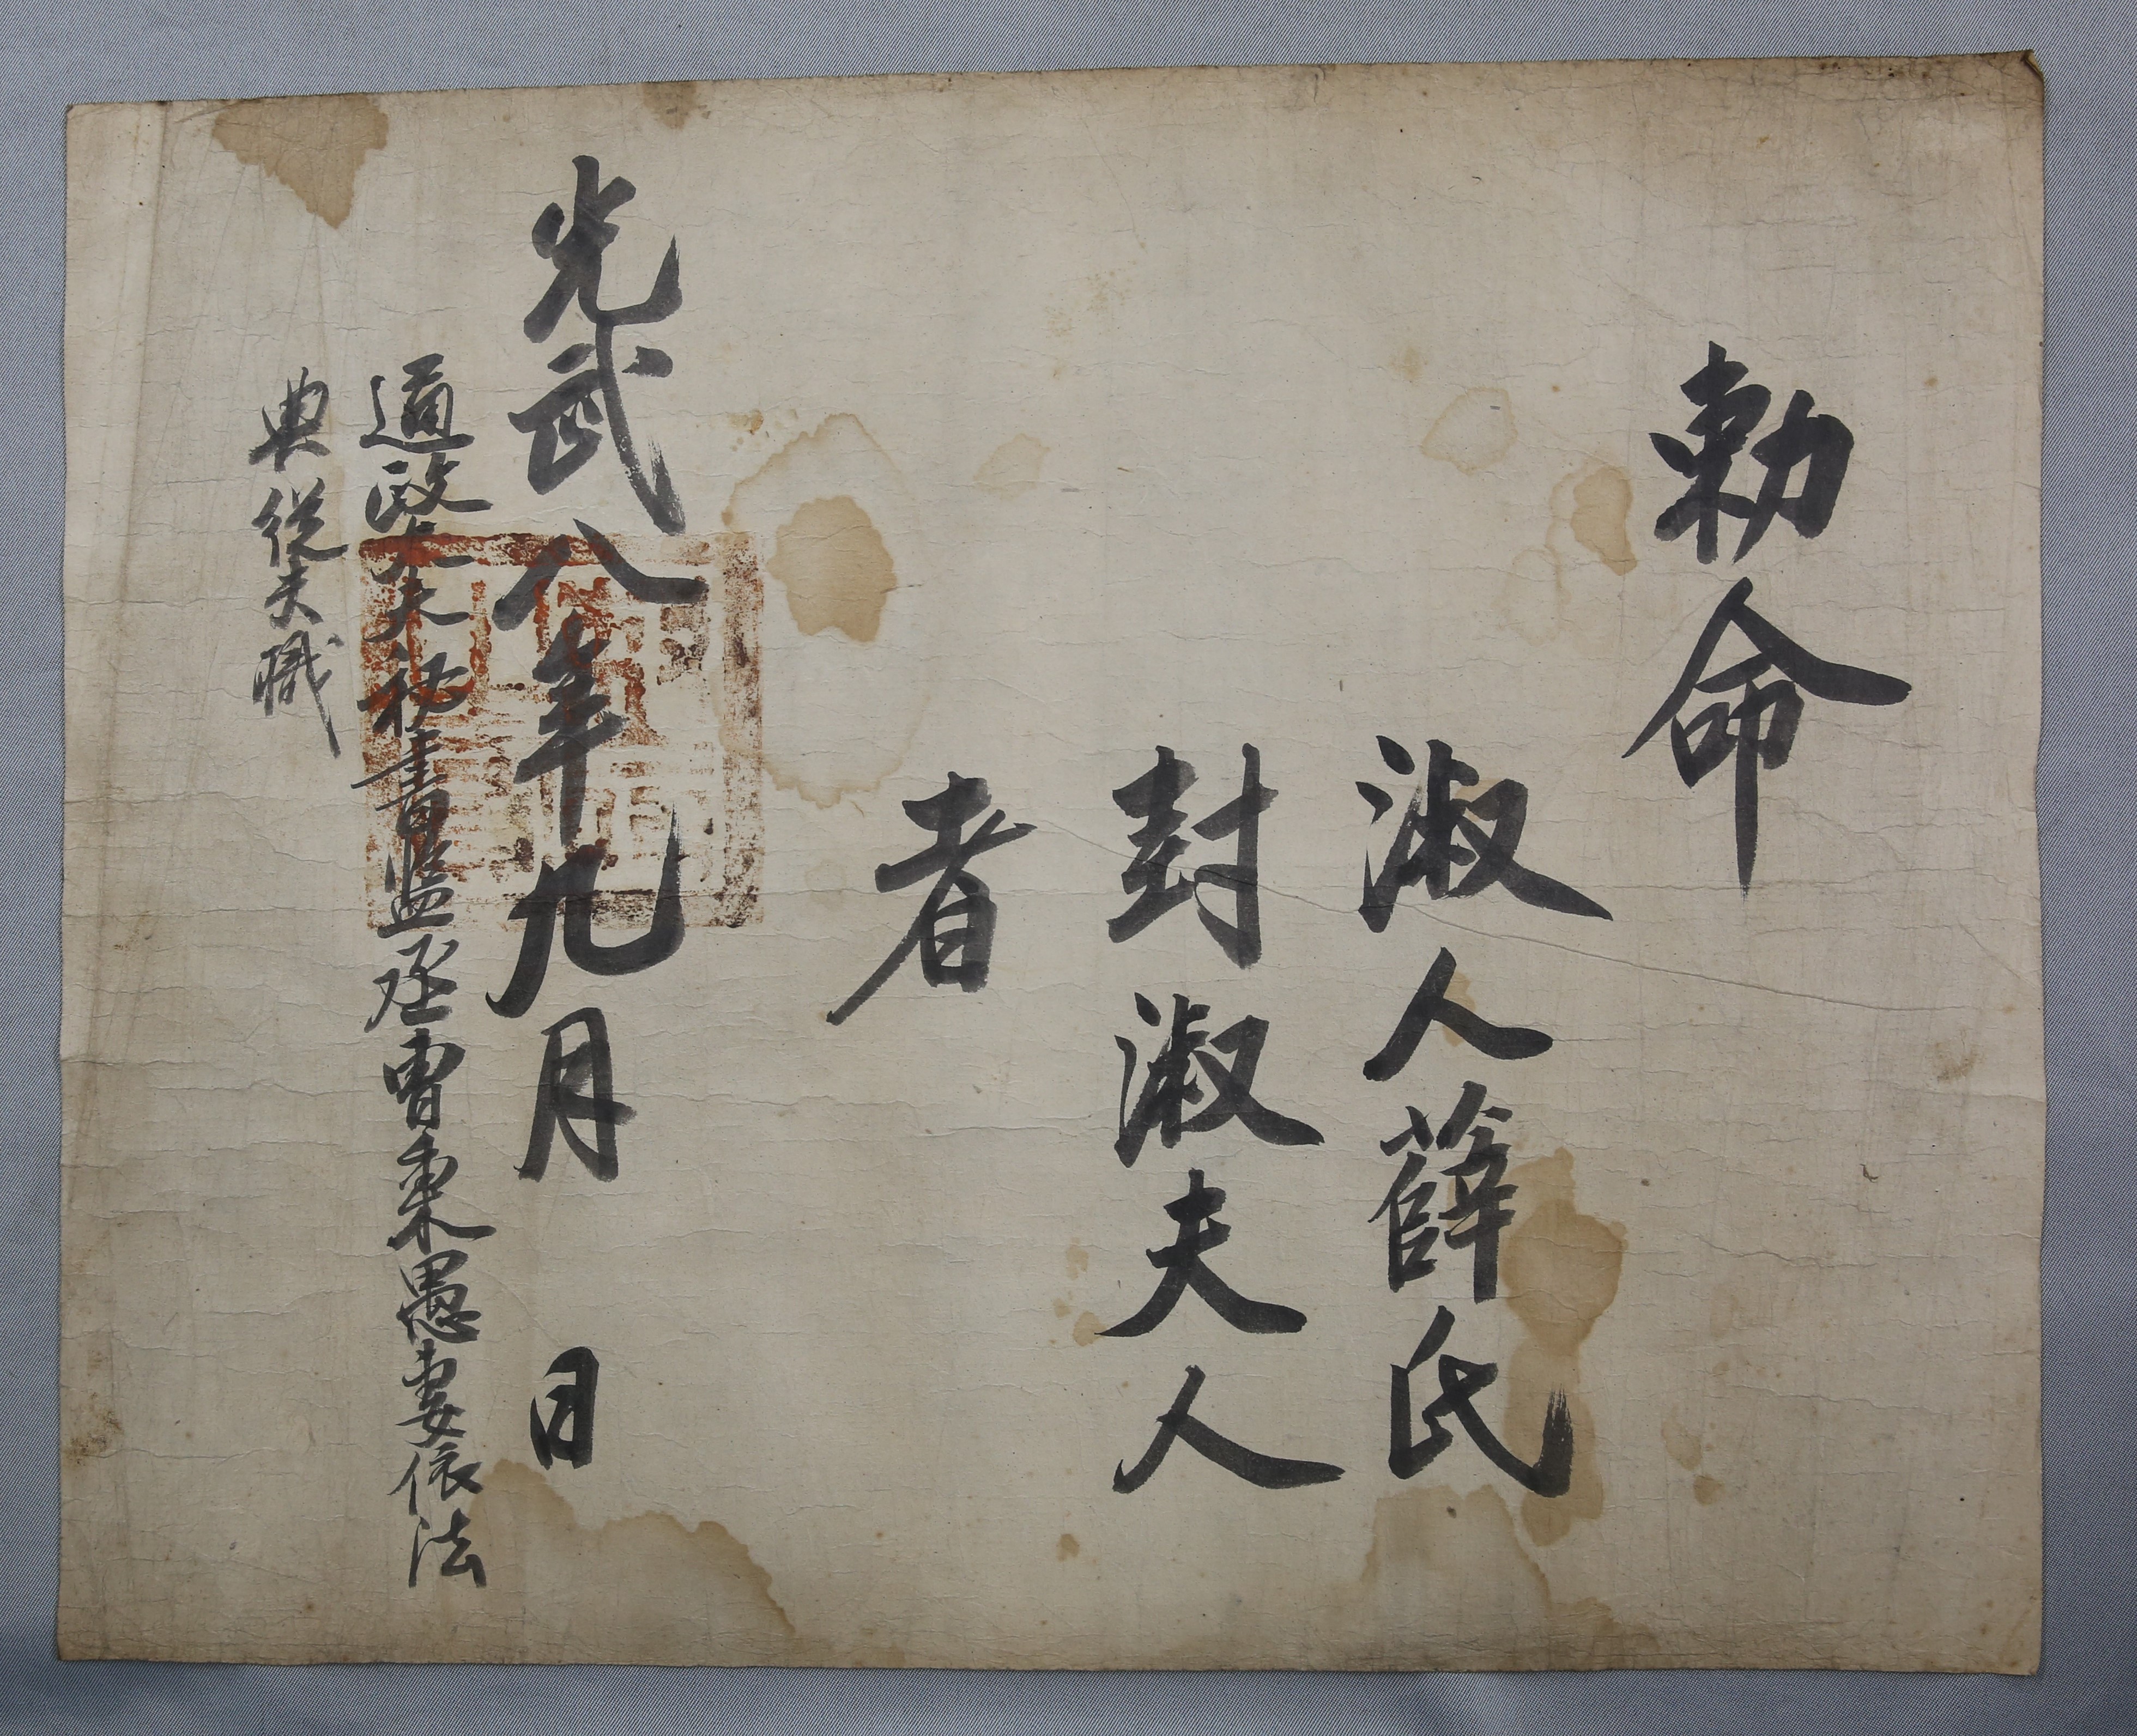 勅命
淑人薛氏
封淑夫人
者
光武八年九月 日
通政大夫秘書監丞曺秉愚妻依法
典從夫職